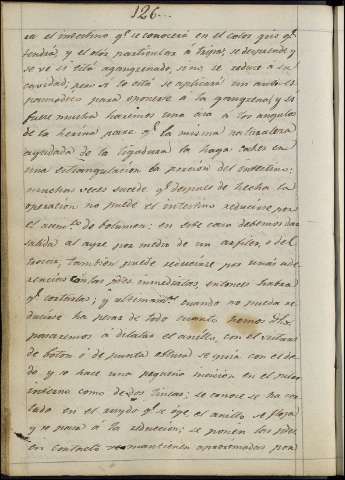 126..
ra el intestino q.e se conocerá en el color gris q.e
tendrá, y el olor particular á tripas, se desprende y
se vé si está agangrenado, sino, se reduce á su
cavidad; pero si lo está se aplicará un anties-
pamodico para oponerse á la gangrena; y si
fuese mucha haremos una asa á los angulos
de la herina para q.e la misma naturaleza
ayudada de la ligadura la haga caher en
una estrangulacion la porcion del intestino:
muchas veces sucede q.e despues de hecha la
operacion no puede el intestino reducirse por
el aum.to de bolumen: en este caso debemos dar
salida al ayre por medio de un alfiler, ó del
trocar; tambien puede reducirse por unas ade-
rencias con las p.tes inmediatas, entonces habrá
q.e cortarlas; y ultimam.te cuando no pueda re-
ducirse ha pesar de todo cuanto hemos dho,
pasaremos á dilatar el anillo, con el visturi
de boton ó de punta obtusa se guia con el de-
do y se hace una pequeña incision en el pilar
interno como de dos lineas; se conoce se ha cor-
tado en el ruydo q.e se oye el anillo se afloja
y se pasa á la reducion; se ponen las p.tes
en contacto se mantienen aprosimadas por